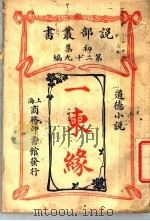 說部叢書
初集
第二十九編
道德小說
一束緣
上海商務印書館發行